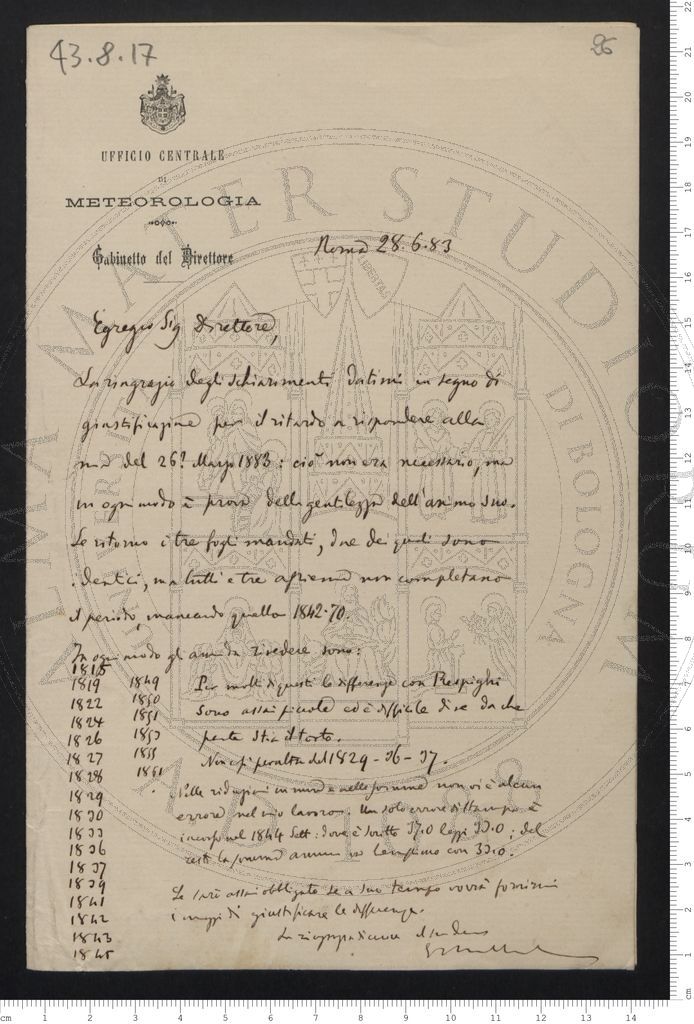 43.8.17
26
UFFICIO CENTRALE
DI
METEOROLOGIA
Gabinetto del Direttore
Roma 28.6.83
Egregio Sig Direttore,
La ringrazio degli schiarimenti datimi in segno di
giustificazione per il ritardo a rispondere alla
mia del 26 Marzo 1883: ciò non era necessario, ma
in ogni modo è prova della gentilezza dell'animo suo.
Le ritorno i tre fogli mandati, due dei quali sono
identici, ma tutti e tre assieme non completano
il periodo, mancando quello 1842-70.
In ogni modo gli anni da rivedere sono:
1815
1819 1849
1822 1850
1824 1851
1826 1853
1827 1855
1828 1861
1829
1830
1833
1836
1837
1839
1841
1842
1843
1845
Per molti di questi le differenze con Respighi
sono assai piccole ed è difficile dire da che
parte stia il torto.
Non così peraltro del 1829-36-37.
Nelle riduzioni in mm e nelle somme non vi è alcun
errore nel mio lavoro. Un solo errore di stampa è
incorso nel 1844 Sett: dove è scritto 37.0 leggi 33.0; del
resto la somma annua va benissimo con 33.0.
Le sarò assai obbligato se a suo tempo vorrà fornirmi
i mezzi di giustificare le differenze.
La ringrazio di nuovo
ALMA MATER STUDIORUM
UNIVERSITÀ DI BOLOGNA
A.D. 1088
LIBERTAS
cm 1 2 3 4 5 6 7 8 9 10 11 12 13 14
22
21
20
19
18
17
16
15
14
13
12
11
10
9
8
7
6
5
4
3
2
1
cm